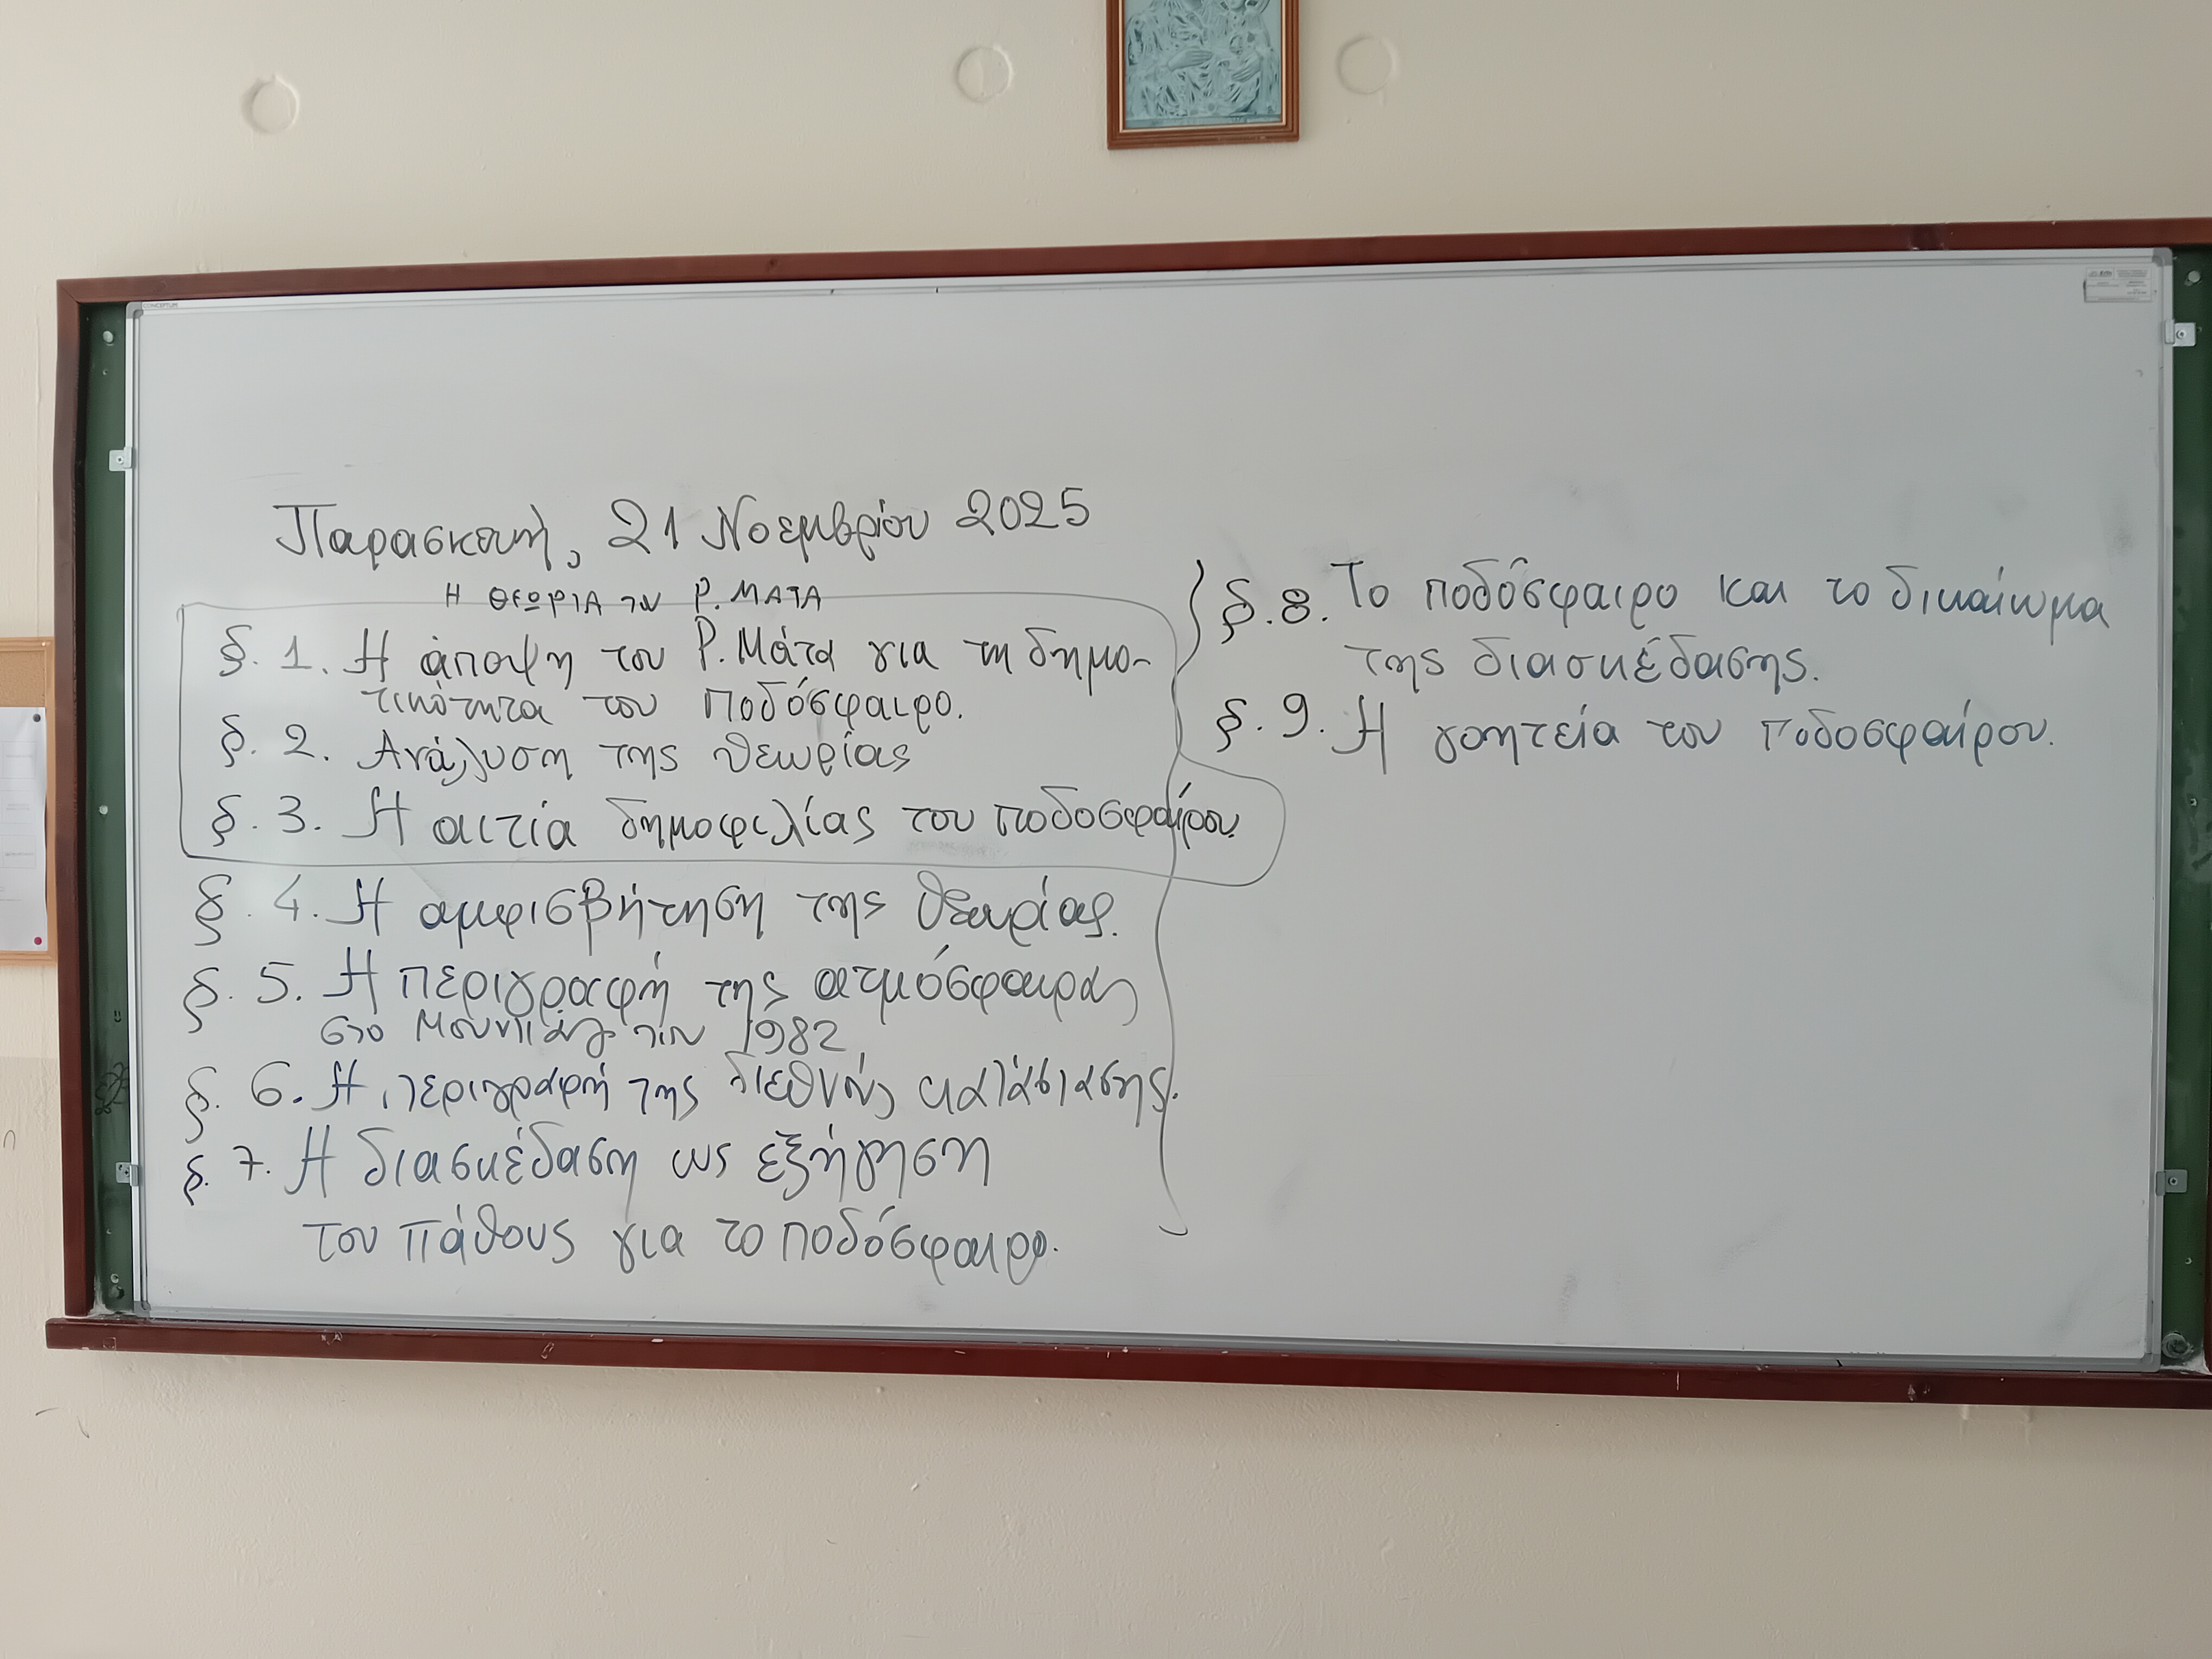 CONCEPTUM
Παρασκευή, 21 Νοεμβρίου 2025
Η ΘΕΩΡΙΑ του Ρ. ΜΑΤΑ
§. 1. Η άποψη του Ρ. Μάτα για τη δημο-
τικότητα του ποδόσφαιρο.
§. 2. Ανάλυση της θεωρίας
§. 3. Η αιτία δημοφιλίας του ποδοσφαίρου.
§. 4. Η αμφισβήτηση της θεωρίας.
§. 5. Η περιγραφή της ατμόσφαιρας
στο Μουντιάλ του 1982
§. 6. Η περιγραφή της διεθνούς κατάστασης.
§. 7. Η διασκέδαση ως εξήγηση
του πάθους για το ποδόσφαιρο.
§. 8. Το ποδόσφαιρο και το δικαίωμα
της διασκέδασης.
§. 9. Η γοητεία του ποδοσφαίρου.